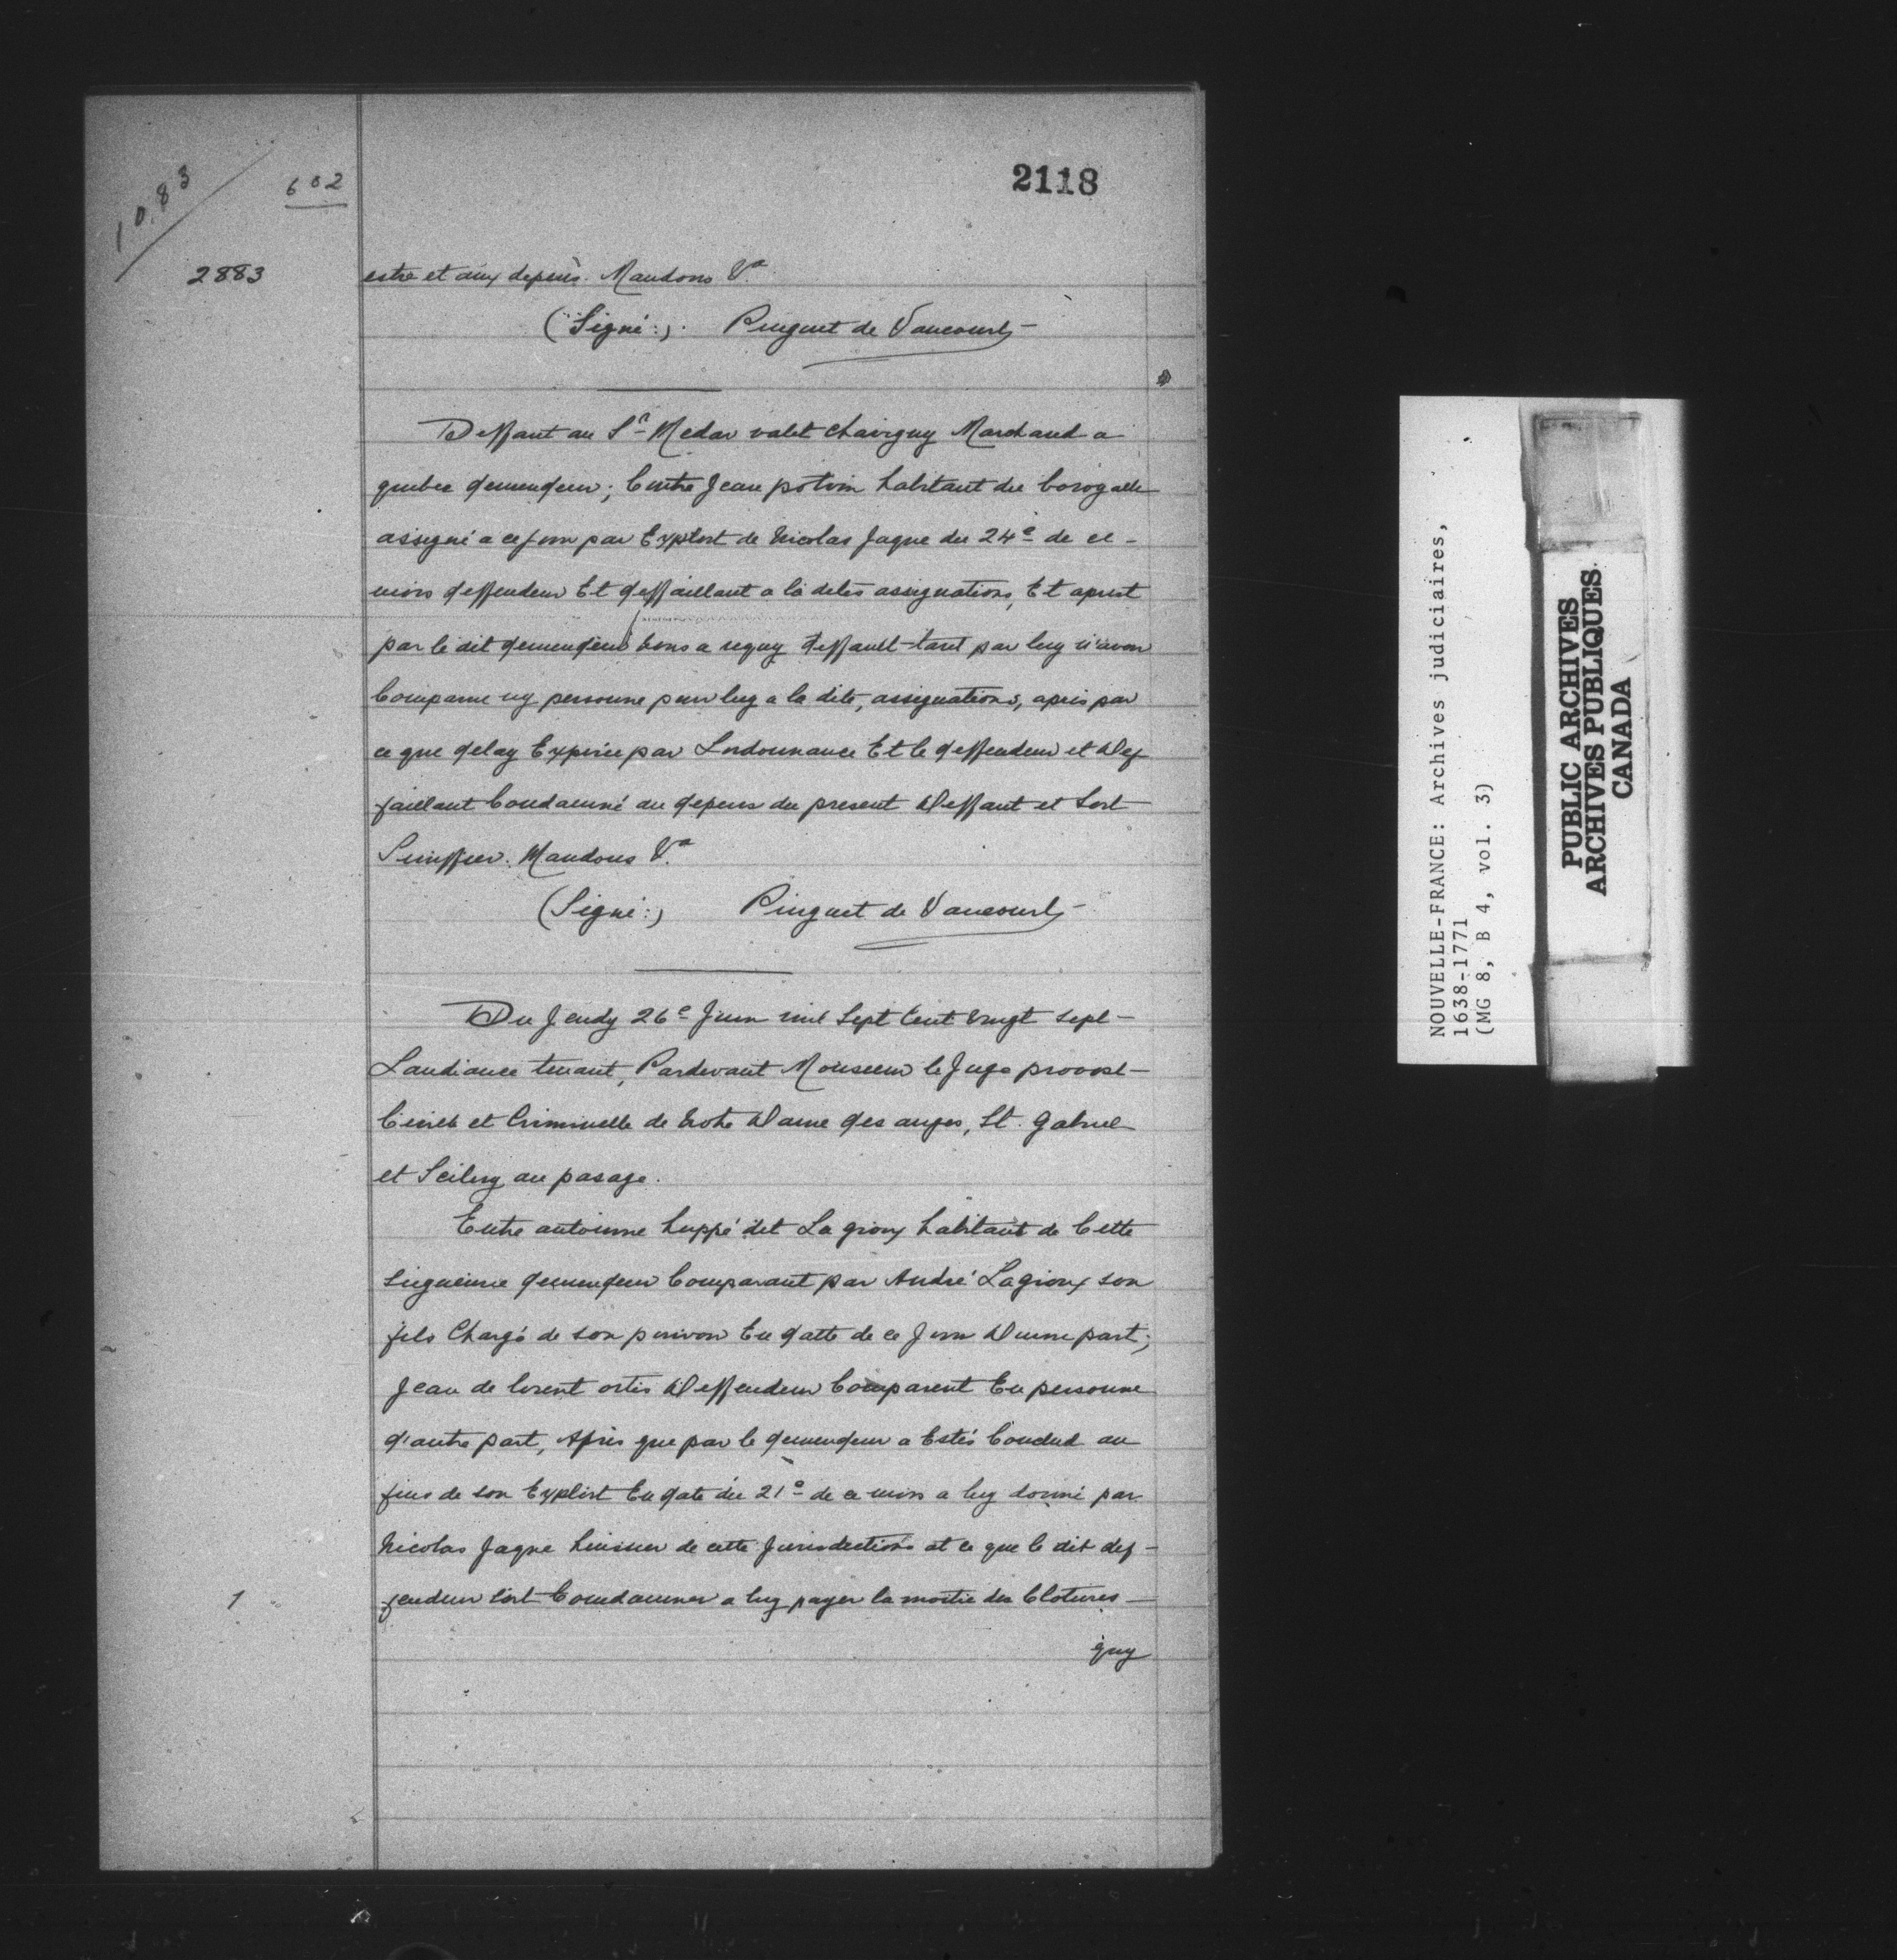 2118
10.83
602
2883
estre et aux depens. Mandons &a.
(Signé:). Pinguet de Vaucourt
Deffaut au Sr. Medar valet chavigny Marchand a
quebec demendeur; Contre Jean potvin habitant du
assigné a ce jour par Exploit de Nicolas Jaque du 24e de ce
mois deffendeur Et deffaillant a la dites assignations, Et aprest
par le dit demendeur vous a deffault tant par luy n'avoir
Comparue ny personne pour luy a la dite, assignations, apris par
ce que delay Expirée par Lordonnance Et le deffendeur et Def
faillant Condamné au depens du present Deffaut et Soit
Seinffier. Mandons &a.
(Signé:) Pinguet de Vaucourt
Du Jeudy 26e Juin mil Sept Cent Vingt sept
Laudiance tenant, Pardevant Monsieur le Juge provost
Civile et Criminelle de Notre Dame des anges, St. Gabriel
et Seilery au pasage.
Entre antoinne huppé dit La groux habitant de Cette
Siegneirie demendeur Comparant par André Lagroux son
fils Chargé de son pouvoir En datte de ce Jour Dunne part;
Jean de lorent ortis Deffendeur Comparent En personne
d'autre part, Après que par le demendeur a Estés Conclud au
fins de son Exploit En date du 21e de ce mois a luy donné par
Nicolas Jaque huissier de cette Jurisdictions et ce que le dit def-
1
fendeur soit Coundamner a luy payer la moitie des Clotures
quy
NOUVELLE-FRANCE: Archives judiciaires,
1638-1771
(MG 8, B 4, vol. 3)
PUBLIC ARCHIVES
ARCHIVES PUBLIQUES
CANADA